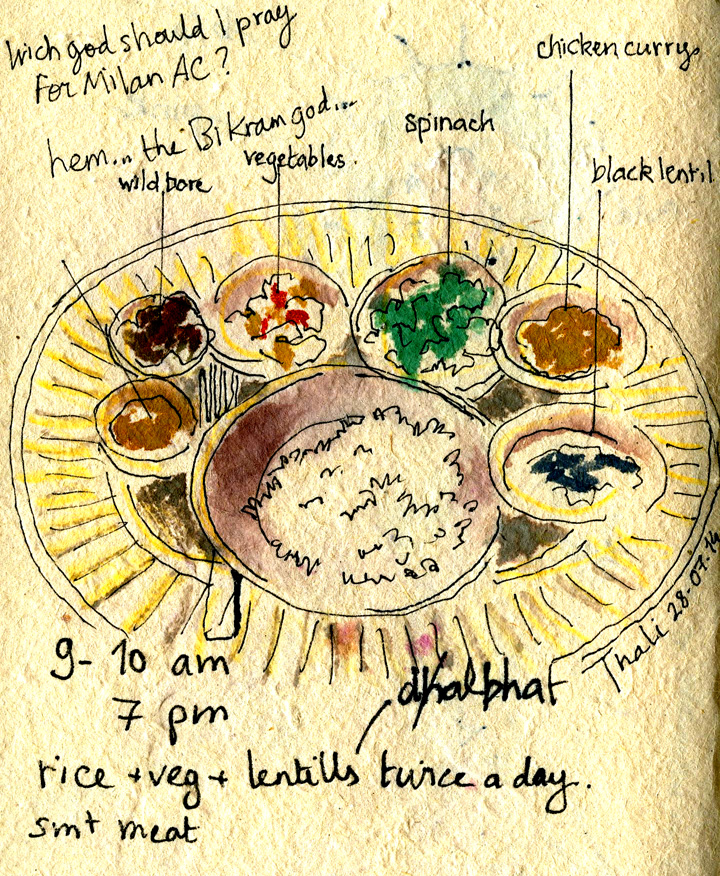 Wich god should I pray
for Milan AC?
hem... the Bikram god...
chicken curry
spinach
vegetables.
wild bore
black lentil
Thali 28-07-14
9-10 am
7 pm
dhalbhat
rice + veg + lentills twice a day.
smt meat